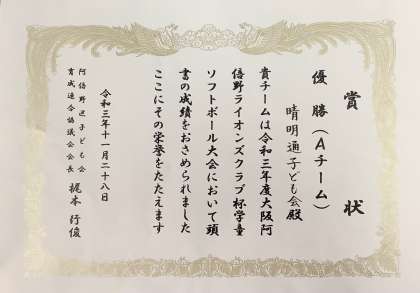 賞状
優勝（Aチーム）
晴明通子ども会殿
貴チームは令和三年度大阪阿
倍野ライオンズクラブ杯学童
ソフトボール大会において頭
書の成績をおさめられました
ここにその栄誉をたたえます
令和三年十一月二十八日
阿倍野区子ども会
育成連合協議会会長
梶本行俊